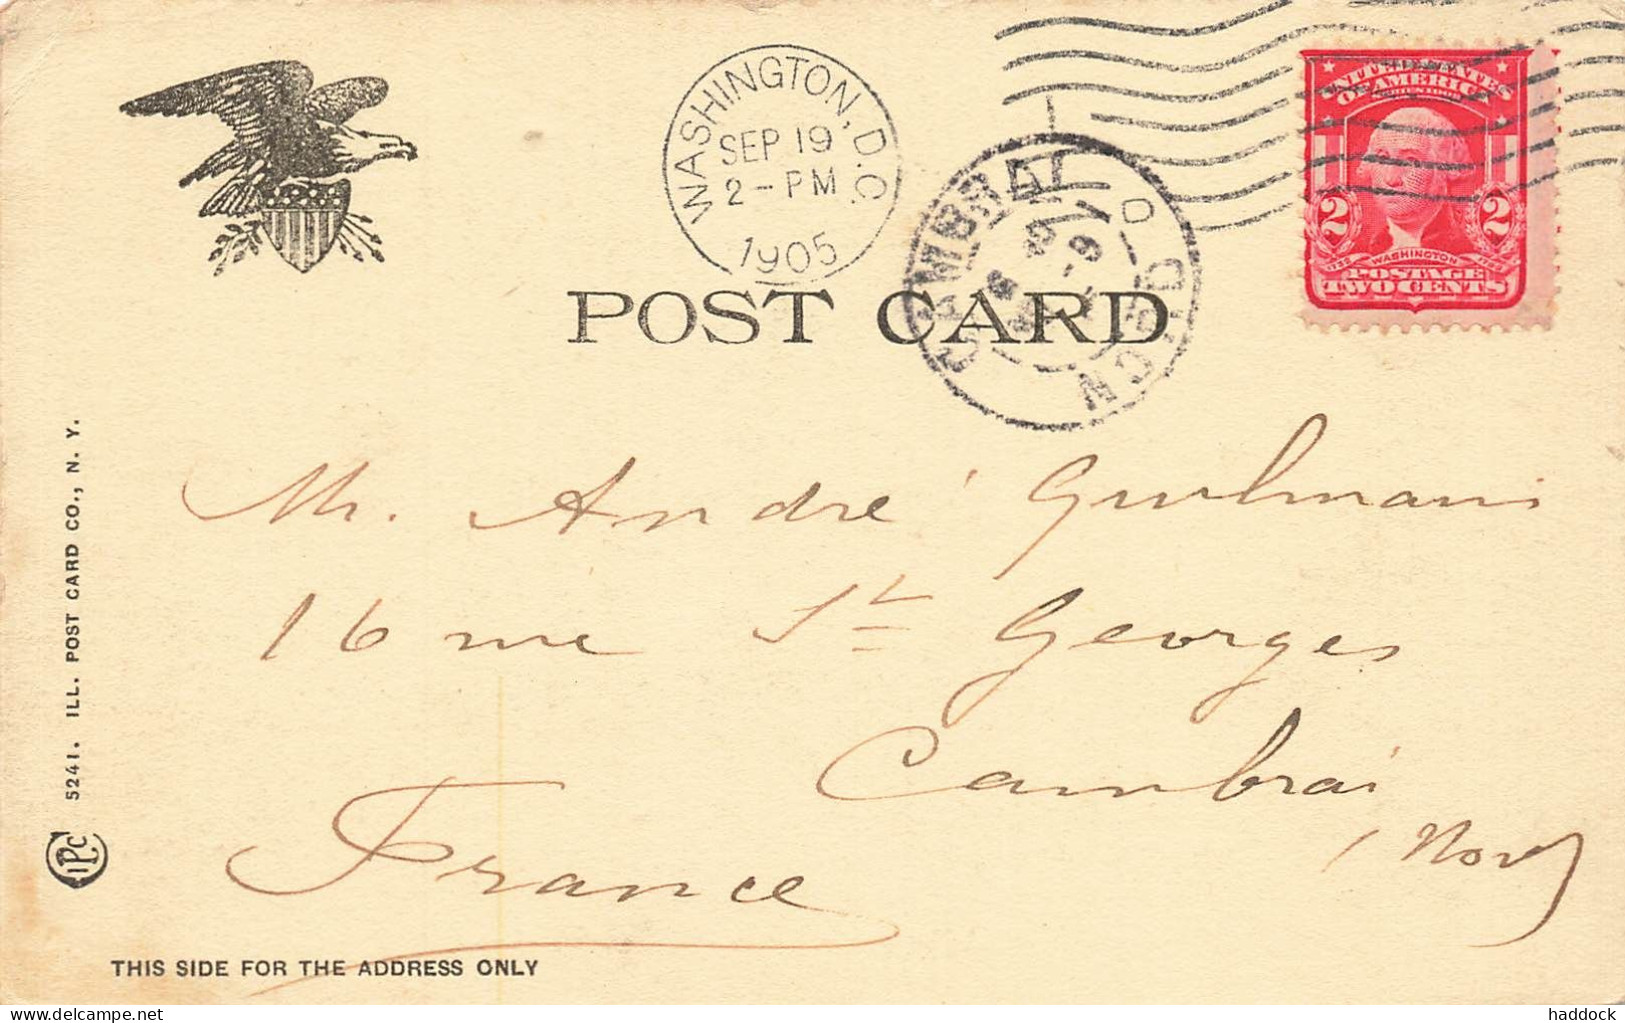 WASHINGTON, D.C.
SEP 19
2-PM
1905
UNITED STATES
OF AMERICA
SERIES 1902
2 2
1732 WASHINGTON 1799
POSTAGE
TWO CENTS
CAMBRAI
NORD
POST CARD
Mr. André
16 rue St Georges
Cambrai
(Nord)
France
5241. ILL. POST CARD CO., N. Y.
IPCC
THIS SIDE FOR THE ADDRESS ONLY
delcampe.net
haddock